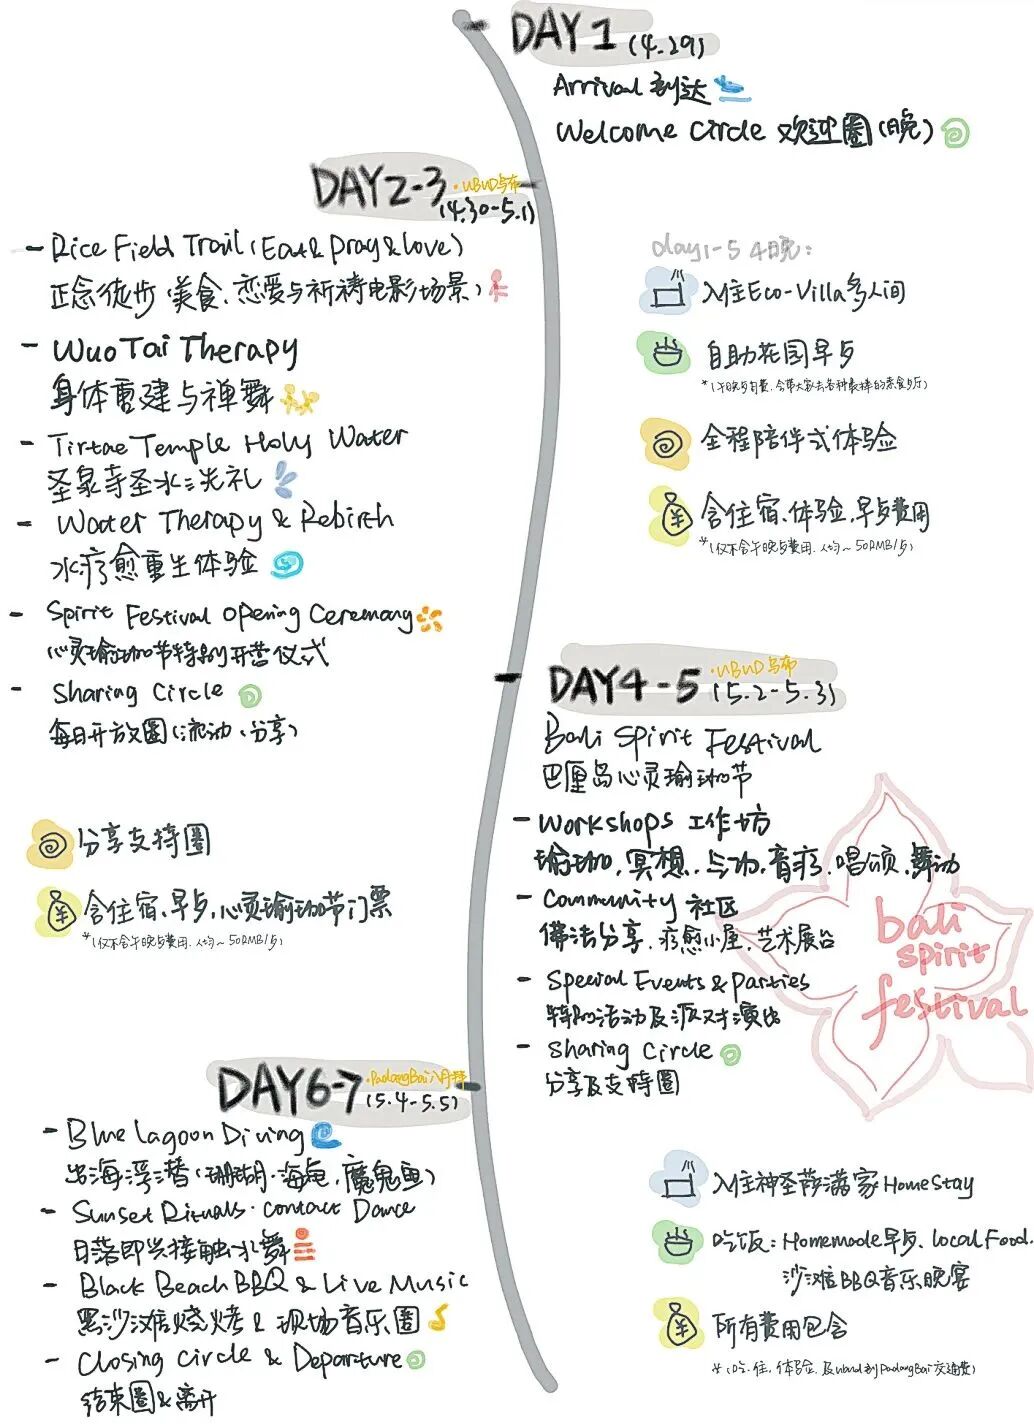 DAY 1 (4.29)
Arrival 到达
Welcome Circle 欢迎圈(晚)
DAY2-3 ·UBUD乌布
(4.30-5.1)
- Rice Field Trail (Eat & pray & love)
正念徒步(美食、恋爱与祈祷电影场景)
- WuoTai Therapy
身体重建与禅舞
- Tirtae Temple Holy Water
圣泉寺圣水洗礼
- Water Therapy & Rebirth
水疗愈重生体验
- Spirit Festival Opening Ceremony
心灵瑜伽节特别开营仪式
- Sharing Circle
每日开放圈(流动、分享)
day1-5 4晚:
入住Eco-Villa多人间
自助花园早歺
*(午晚歺自费,会带大家去各种最棒的素食歺厅)
全程陪伴式体验
含住宿、体验、早歺费用
*(仅不含午晚歺费用、人均~50RMB/歺)
DAY4-5 ·UBUD乌布
(5.2-5.3)
Bali Spirit Festival
巴厘岛心灵瑜伽节
- Workshops 工作坊
瑜伽、冥想、气功、音疗、唱颂、舞动
- Community 社区
佛法分享、疗愈小屋、艺术展台
- Special Events & Parties
特别活动及派对演出
- Sharing Circle
分享及支持圈
bali
spirit
festival
分享支持圈
含住宿、早歺、心灵瑜伽节门票
*(仅不含午晚歺费用、人均~50RMB/歺)
DAY6-7 ·PadangBai
(5.4-5.5)
- Blue Lagoon Diving
出海浮潜(珊瑚、海龟、魔鬼鱼)
- Sunset Rituals · Contact Dance
日落即兴接触水舞
- Black Beach BBQ & Live Music
黑沙滩烧烤 & 现场音乐圈
- Closing Circle & Departure
结束圈&离开
入住神圣萨满家HomeStay
吃饭: Homemade早歺、Local Food.
沙滩BBQ音乐晚宴
所有费用包含
*(吃、住、体验、及ubud到PadangBai交通费)